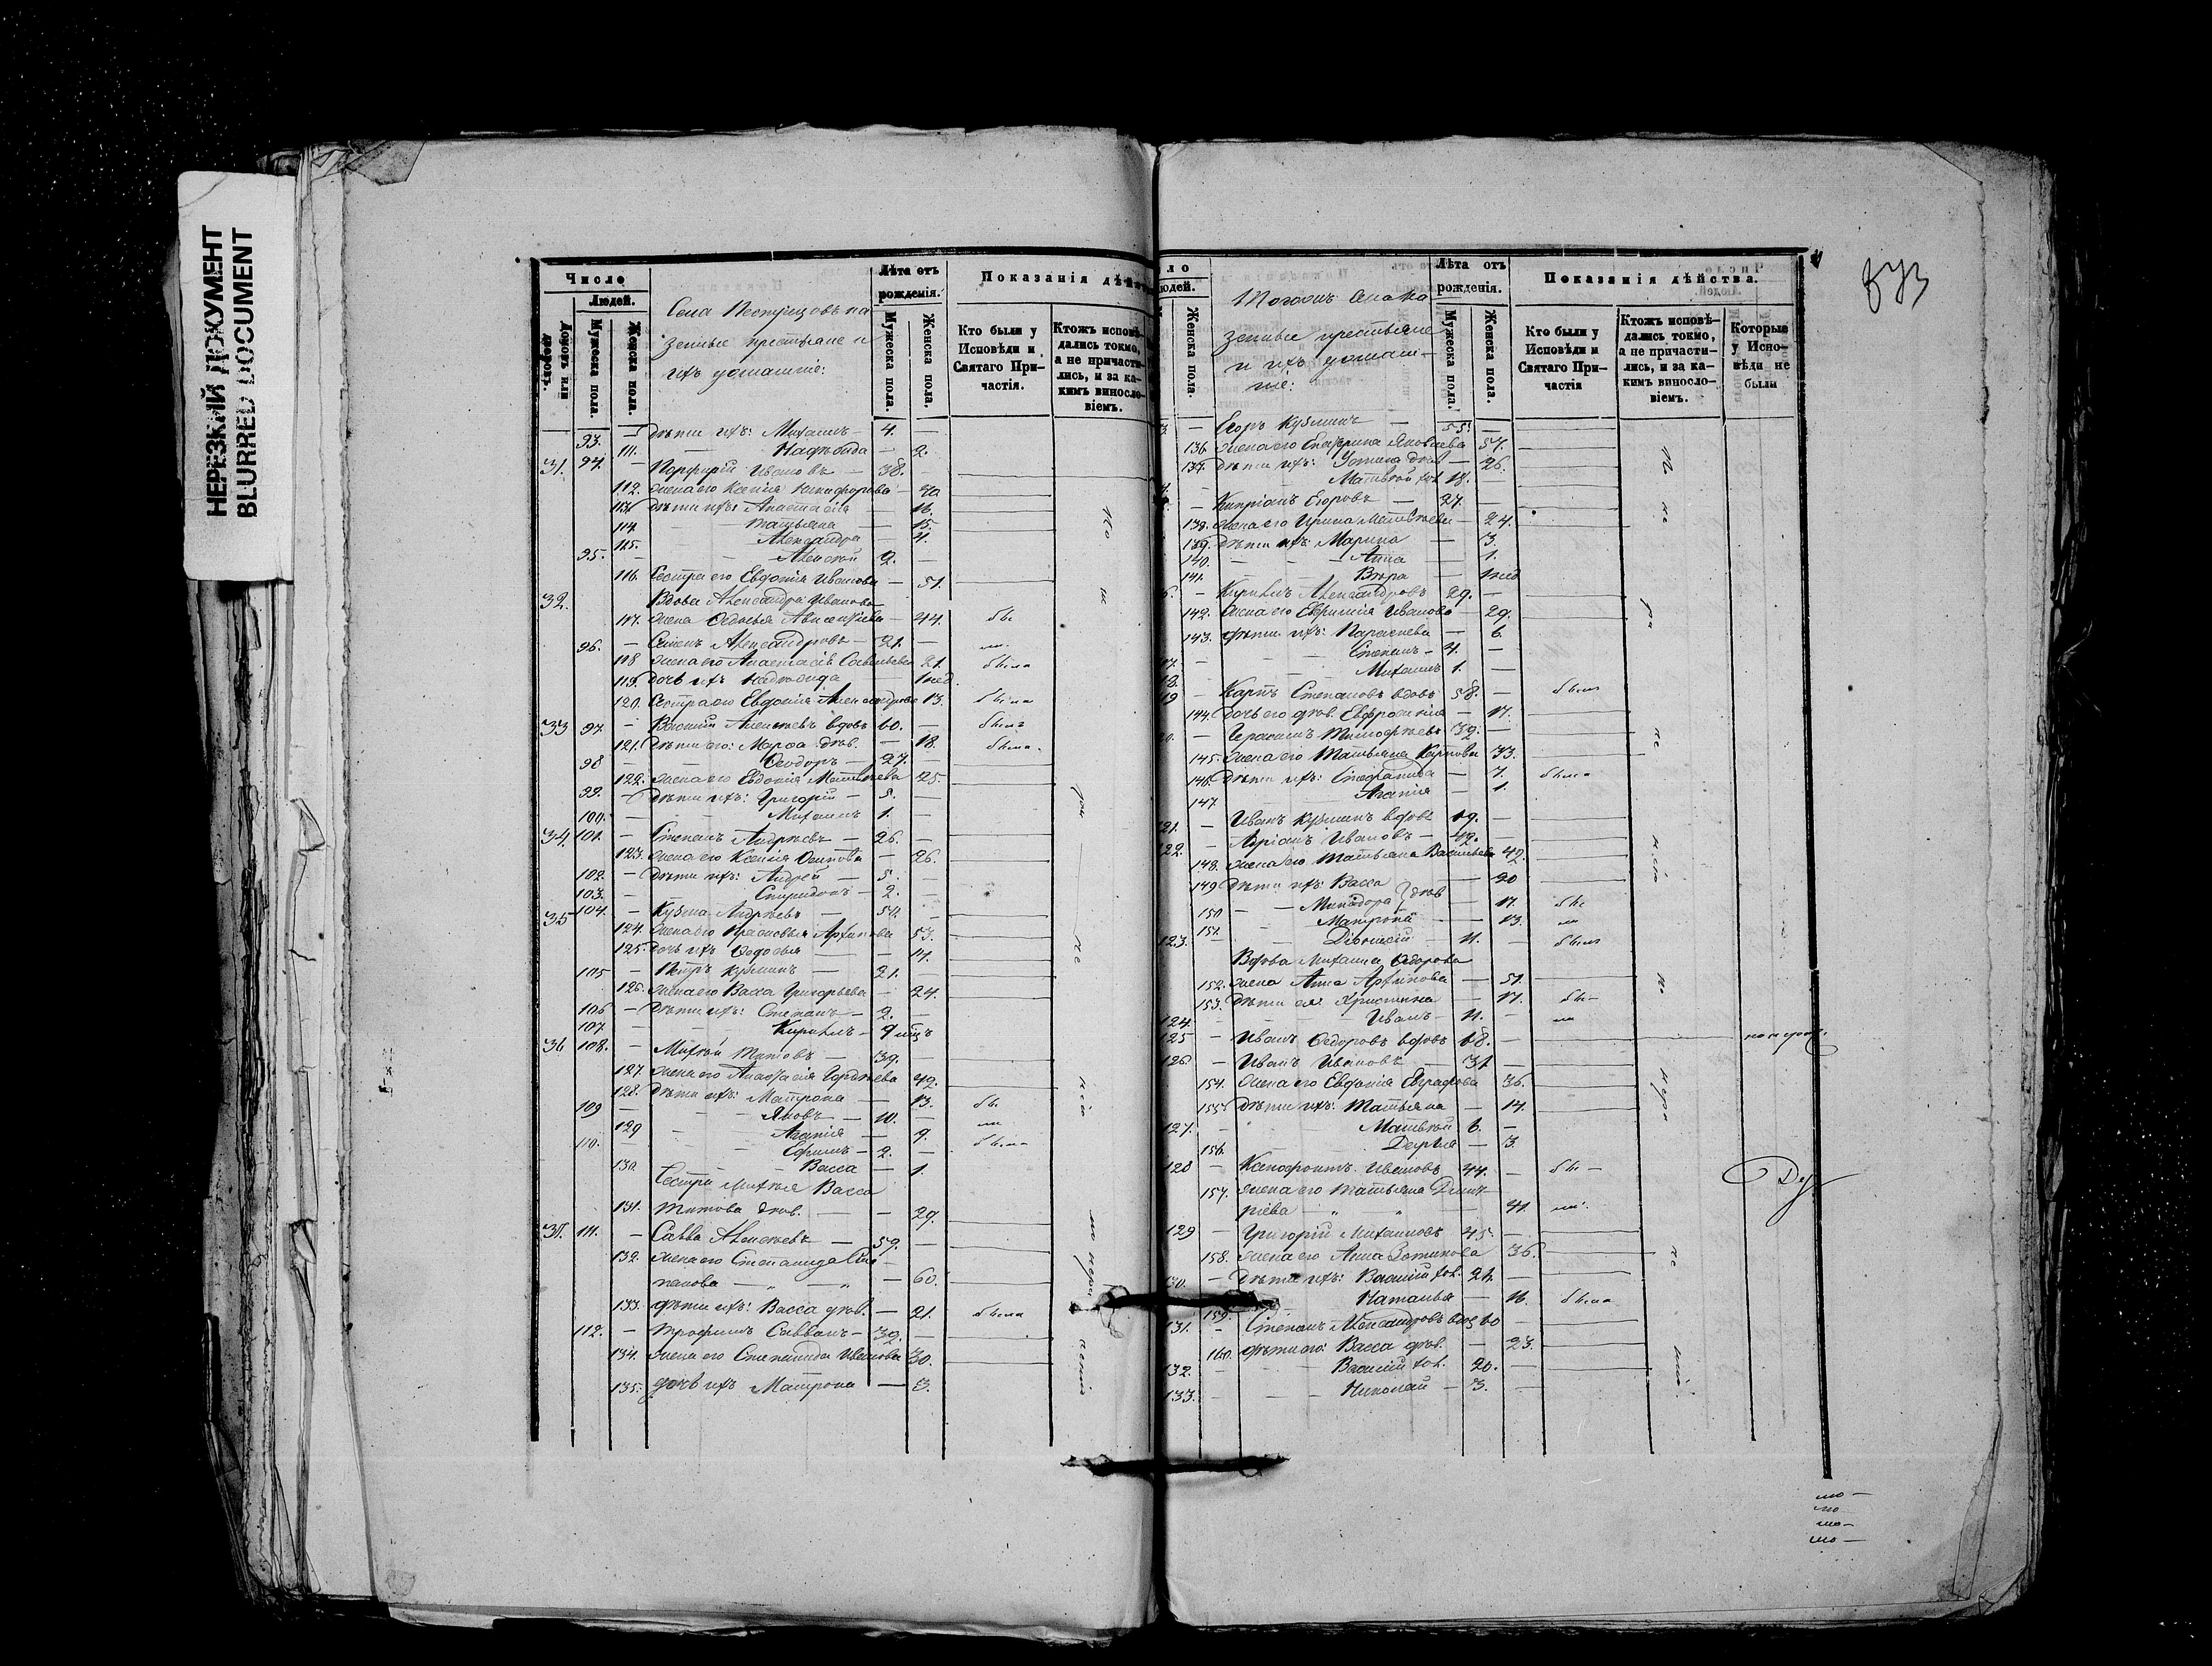 НЕРЕЗКИЙ ДОКУМЕНТ
BLURRED DOCUMENT
Число
Людей.
Домовъ или дворовъ.
Мужеска пола.
Женска пола.
Села
казенные крестьяне и
ихъ домашніе:
Лѣта отъ рожденія.
Мужеска пола.
Женска пола.
Показанія дѣйст
Кто были у Исповѣди и Святаго Причастія.
Ктожъ исповѣдались токмо, а не причастились, и за какимъ винословіемъ.
93. — дѣти ихъ: Михаилъ — 4. —
111. — Надѣжда — 2.
31. 94. — Порфирій Ивановъ — 38. —
112. жена его Ксенія Никифорова — 40
113. дѣти ихъ: Анастасія — 16.
114. — Татьяна — 15.
115. Александра — 4.
95. — Алексѣй 2. —
116. Сестра его Евдокія Иванова — 51.
32. Вдова Александра Иванова
117. жена Федосья — 44. бы
96. — Семенъ Александровъ — 21. — ли
118 жена его Анастасія Савельева 21. была
119. дочь ихъ Надежда — 1 нед.
120. Сестра его Евдокія Александрова 13. была
33 97. — Василій Алексѣевъ вдовъ 60. — былъ
121. дѣти его: Марѳа дѣв. — 18. была.
98 — Ѳеодоръ — 27. —
122. жена его Евдокія Матвѣева 25.
99. — дѣти ихъ: Григорій — 5. —
100. — Михаилъ 1. —
34 101. — Степанъ Андреевъ — 26. —
123. жена его Ксенія Осипова — 26.
102. — дѣти ихъ: Андрей — 5. —
103. — Спиридонъ — 2. —
35 104. — Кузма Андреевъ — 54. —
124. жена его Прасковья Архипова 53.
125. дочь ихъ Ѳедосья — 14.
105 — Петръ Кузминъ — 21. —
126. жена его Васса Григорьева — 24.
106 — дѣти ихъ: Степанъ — 2. —
107. — Кирилъ — 9 мцъ
36 108. — Михѣй Титовъ — 39. —
127. жена его Анастасія Гордѣева 42.
128. дѣти ихъ: Матрона — 13. бы
109 — Яковъ — 10. — ли
129 — Агапія — 9. была
110. — Ефимъ — 2. —
130. — Васса — 1.
Сестра Михѣя Васса
131. Титова дѣв. — 29.
37. 111. — Савва Алексѣевъ — 59. —
132. жена его Степанида Сте-
панова — " — " — 60.
133. дѣти ихъ: Васса дѣв. — 21. была
112. — Трофимъ Саввинъ — 32. —
134. жена его Степанида Иванова 30.
135. дочь ихъ Матрона — 3.
873
ло
юдей.
Женска пола.
казенные крестьяне
и ихъ домаш-
ніе:
Лѣта отъ рожденія.
Мужеска пола.
Женска пола.
Показанія дѣйства.
Кто были у Исповѣди и Святаго Причастія
Ктожъ исповѣдались токмо, а не причастились, и за какимъ винословіемъ.
Которые у Исповѣди не были
3. — Егоръ Кузминъ — 55. —
136. жена его Екатерина Яковлева 57.
137. дѣти ихъ: Устина дѣв. — 26.
— Матвѣй хол. 18. —
— Кипріанъ Егоровъ — 27. —
138. жена его Ирина Матвѣева — 24.
139. дѣти ихъ: Марина — 3.
140. — Анна — 1.
141. — Вѣра — 1 нед
6. — Кирилъ Александровъ 29. —
142. жена его Евфимія Иванова — 29.
143. дѣти ихъ: Параскева — 6.
17. — Степанъ — 4. —
18. — Михаилъ 1. —
19 — Карпъ Степановъ вдовъ 58. — былъ
144. дочь его дѣв. Евфросинія — 17.
20. — Герасимъ Тимофеевъ 32. —
145. жена его Татьяна Карпова 33.
146. дѣти ихъ: Степанида — 7. была
147. Агапія — 1.
121. — Иванъ Кузминъ вдовъ 69. —
122. — Адріанъ Ивановъ — 42. —
148. жена его Татьяна Васильева 42.
149 дѣти ихъ: Васса — 20
150 — Минадора дѣв — 17. бы
151. Матрона — 13. ли
123. — Діонисій — 11. — былъ
Вдова Михаила Ѳедорова
152. жена Анна Архипова — 51.
153. дѣти ея: Христина — 17. бы —
124. — Иванъ — 11. — ли
125 — Иванъ Ѳедоровъ вдовъ 68. —
126. — Иванъ Ивановъ — 31 —
154. жена его Евдокія Евграфова 36.
155. дѣти ихъ: Татьяна — 14.
127. — Матвѣй 6. —
156. — Дарья — 3.
128 — Ксенофонтъ Ивановъ 44. — бы —
157. жена его Татьяна Дмит-
ріева — " — " — 41. ли.
129 — Григорій Михаиловъ 45. —
158. жена его Анна Зотикова 36.
130. — дѣти ихъ: Василій хол. 21. —
159. Наталья — 16. была
131. — Степанъ Александровъ вдов 60 —
160. дѣти его: Васса дѣв. — 23.
132. — Василій хол. 20. —
133. — Николай — 3. —